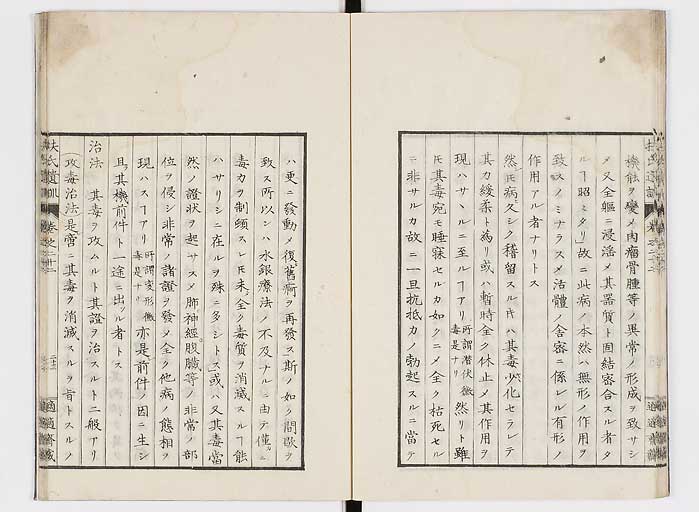 機能ヲ變メ肉瘤骨腫等ノ異常ノ形成ヲ致サシ
メ又全軀ニ浸淫メ其器質ト固結密合スル者タ
ルヿ昭ミタリ故ニ此病ノ本然ハ無形ノ作用ヲ
致スノミナラス〆活體ノ舎密ニ係レル有形ノ
作用アル者ナリトス
然𪜈病久シク稽留スル𪜈ハ其毒少シク化セラレテ
其力緩柔ト為リ或ハ暫時全ク休止〆其作用ヲ
現ハサヽルニ至ルヿアリ所謂潜伏黴毒是ナリ然リト雖
𪜈其毒宛モ睡寐セルカ如クニ〆全ク枯死セル
ニ非サルカ故ニ一旦抗抵力ノ勃起スルニ當テ
ハ更ニ發動〆復舊痾ヲ再發ス斯ノ如ク間歇ヲ
致ス所以ンハ水銀療法ノ不及ナルニ由テ僅ニ
毒力ヲ制頠スレ𪜈未タ全ク毒質ヲ消滅スルヿ能
ハサリシニ在ルヲ殊ニ多シトス或ハ又其毒當
然ノ證状ヲ起サス〆肺神經腹臓等ノ非常ノ部
位ヲ侵シ非常ノ諸證ヲ發〆全ク他病ノ態相ヲ
現ハスヿアリ所謂変形黴毒是ナリ亦是前件ノ因ニ生シ
且其機前件ト一途ニ出ツル者トス
治法 其毒ヲ攻ムルト其證ヲ治スルト二般アリ
攻毒治法是啻ニ其毒ヲ消滅スルヲ旨トスルノ
扶氏遺訓 卷之二十二
適適齋藏